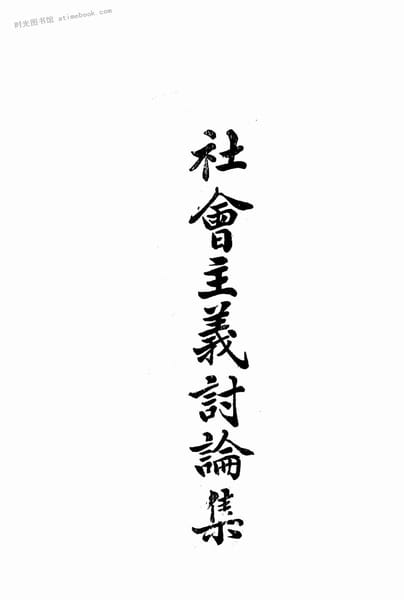 时光图书馆 atimebook.com
社會主義討論集